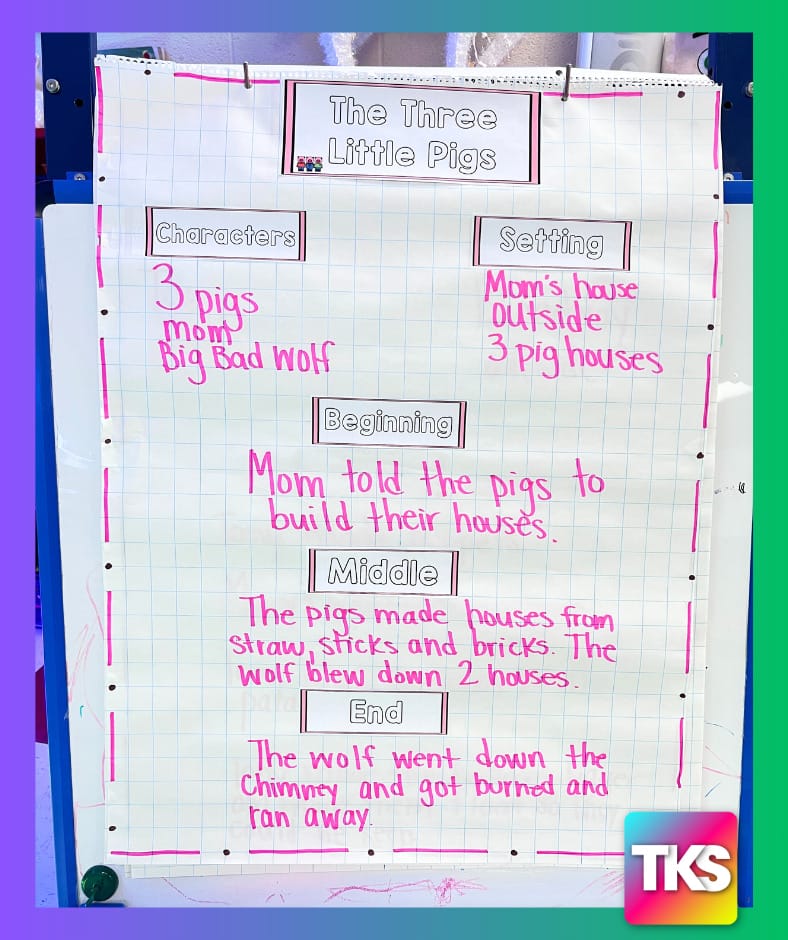 The Three
Little Pigs
Characters
3 pigs
mom
Big Bad Wolf
Setting
Mom's house
outside
3 pig houses
Beginning
Mom told the pigs to
build their houses.
Middle
The pigs made houses from
straw, sticks and bricks. The
wolf blew down 2 houses.
End
The wolf went down the
Chimney and got burned and
ran away.
TKS